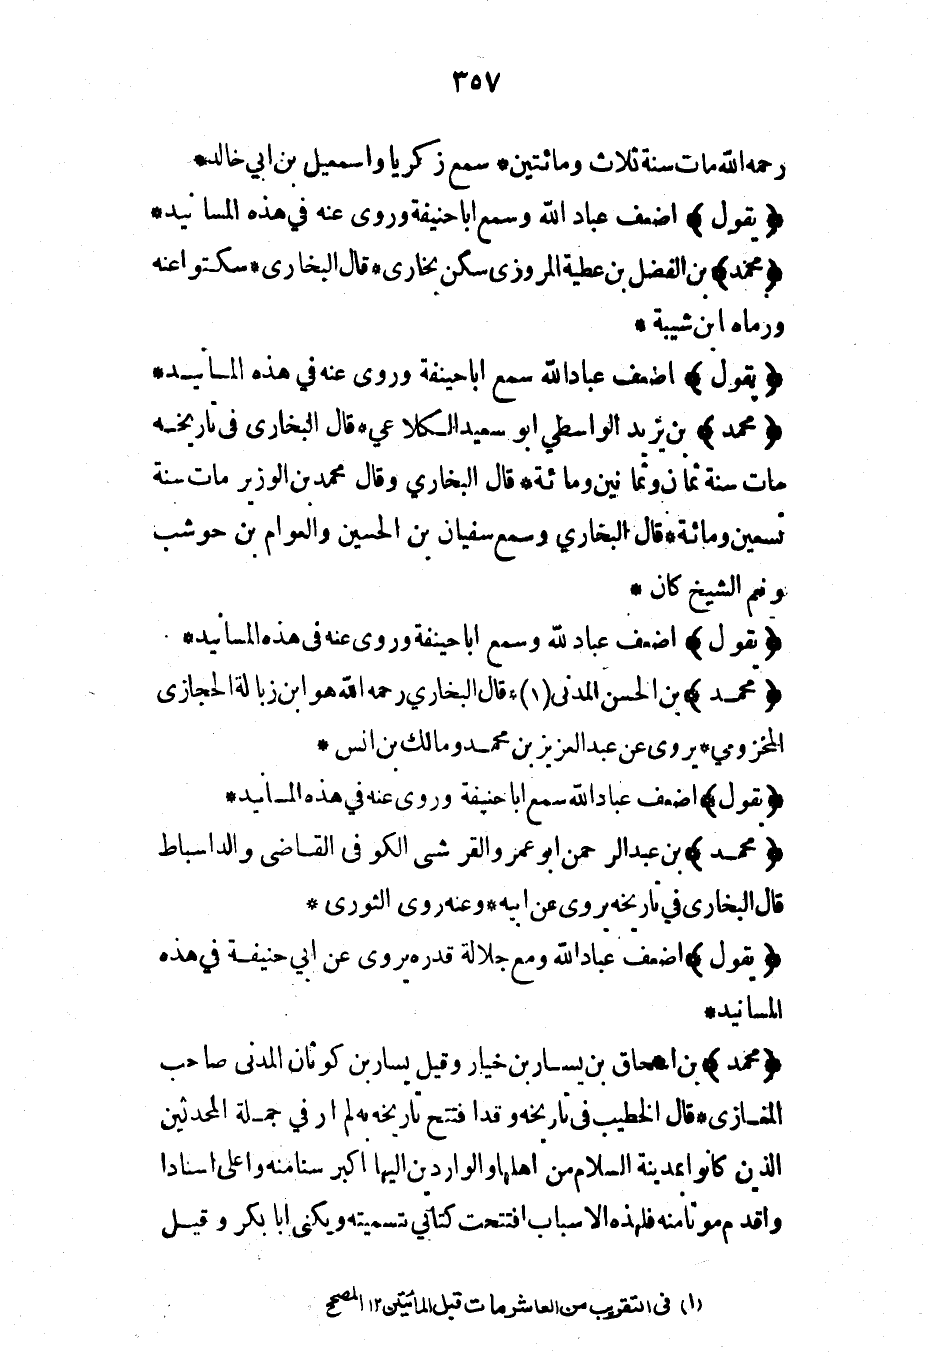 ٣٥٧
رحمه الله مات سنة ثلاث ومائتين * سمع زكريا واسمعيل بن ابي خالد *
﴿ يقول ﴾ اضعف عباد الله وسمع ابا حنيفة وروى عنه في هذه المسانيد *
﴿ محمد ﴾ بن الفضل بن عطية المروزى سكن بخارى * قال البخارى * سكتوا عنه
ورماه ابن شيبة *
﴿ يقول ﴾ اضعف عباد الله سمع ابا حنيفة وروى عنه في هذه المسانيد *
﴿ محمد ﴾ بن يزيد الواسطي ابو سعيد الكلاعي * قال البخارى فى تاريخه
مات سنة ثمان وثمانين ومائة * قال البخاري وقال محمد بن الوزير مات سنة
تسعين ومائة * قال البخاري وسمع سفيان بن الحسين والعوام بن حوشب
ونعم الشيخ كان *
﴿ يقول ﴾ اضعف عباد لله وسمع ابا حنيفة وروى عنه فى هذه المسانيد *
﴿ محمد ﴾ بن الحسن المدنى (١) * قال البخاري رحمه الله هو ابن زبالة الحجازى
المخزومي * يروى عن عبدالعزيز بن محمد ومالك بن انس *
﴿ يقول ﴾ اضعف عباد الله سمع ابا حنيفة وروى عنه في هذه المسانيد *
﴿ محمد ﴾ بن عبدالرحمن ابو عمرو القرشى الكوفى القاضى والد اسباط
قال البخارى في تاريخه يروى عن ابيه * وعنه روى الثورى *
﴿ يقول ﴾ اضعف عباد الله ومع جلالة قدره يروى عن ابي حنيفة في هذه
المسانيد *
﴿ محمد ﴾ بن اسحاق بن يسار بن خيار وقيل يسار بن كوثان المدنى صاحب
المغازى * قال الخطيب فى تاريخه وقد افتتح تاريخه به لم ار في جملة المحدثين
الذين كانوا بمدينة السلام من اهلها والواردين اليها اكبر سنا منه واعلى اسنادا
واقدم موتا منه فلهذه الاسباب افتتحت كتابي بتسميته ويكنى ابا بكر وقيل
(١) فى التقريب من العاشر مات قبل المائتين ١٢ المصحح